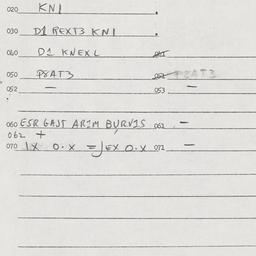 020 KNI .
030 D1 REXT3 KNI .
040 D1 KNEXL
050 P8AT3 051 P8AT3
052 — 053 —
060 ESR GAST ARIM BURVIS 061 —
062 +
070 IX O.X =JEX O.X 071 —